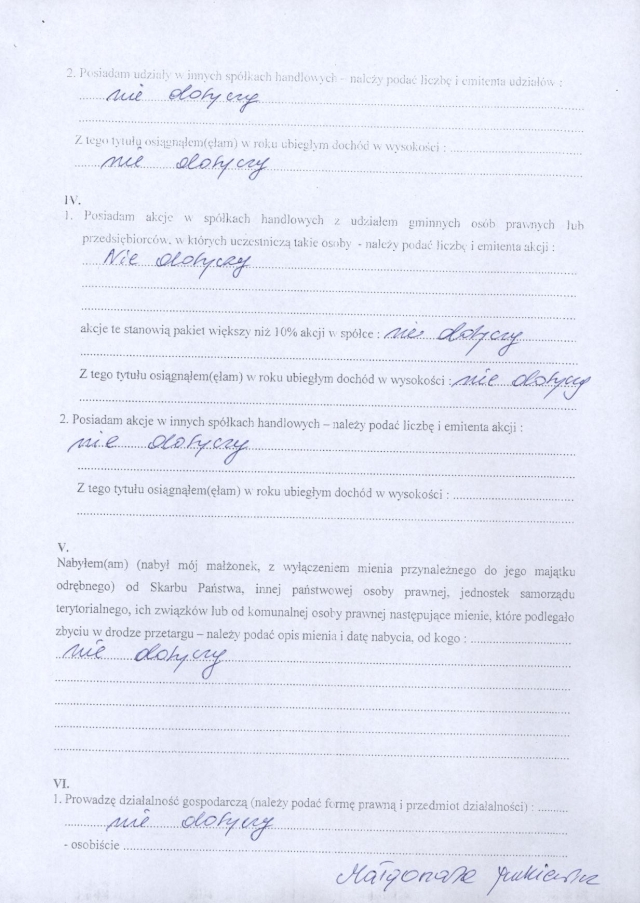 2. Posiadam udziały w innych spółkach handlowych – należy podać liczbę i emitenta udziałów :
nie dotyczy
Z tego tytułu osiągnąłem(ęłam) w roku ubiegłym dochód w wysokości :
nie dotyczy
IV.
1. Posiadam akcje w spółkach handlowych z udziałem gminnych osób prawnych lub
przedsiębiorców, w których uczestniczą takie osoby - należy podać liczbę i emitenta akcji :
Nie dotyczy
akcje te stanowią pakiet większy niż 10% akcji w spółce : nie dotyczy
Z tego tytułu osiągnąłem(ęłam) w roku ubiegłym dochód w wysokości : nie dotyczy
2. Posiadam akcje w innych spółkach handlowych – należy podać liczbę i emitenta akcji :
nie dotyczy
Z tego tytułu osiągnąłem(ęłam) w roku ubiegłym dochód w wysokości :
V.
Nabyłem(am) (nabył mój małżonek, z wyłączeniem mienia przynależnego do jego majątku
odrębnego) od Skarbu Państwa, innej państwowej osoby prawnej, jednostek samorządu
terytorialnego, ich związków lub od komunalnej osoby prawnej następujące mienie, które podlegało
zbyciu w drodze przetargu – należy podać opis mienia i datę nabycia, od kogo :
nie dotyczy
VI.
1. Prowadzę działalność gospodarczą (należy podać formę prawną i przedmiot działalności) :
nie dotyczy
- osobiście
Małgorzata